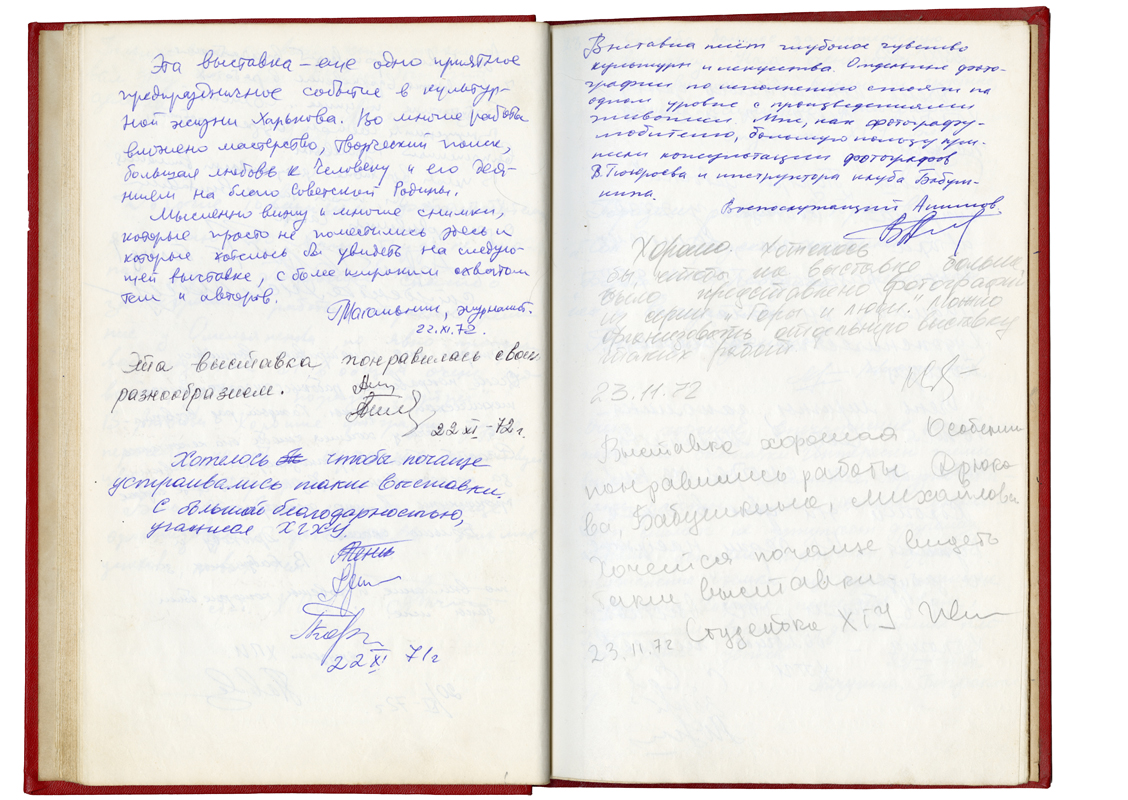 Эта выставка – еще одно приятное
предпраздничное событие в культур-
ной жизни Харькова. Во многие работы
вложено мастерство, творческий поиск,
большая любовь к Человеку и его дея-
ниям на благо Советской Родины.
Мысленно вижу и многие снимки,
которые просто не поместились здесь и
которые хотелось бы увидеть на следую-
щей выставке, с более широким охватом
тем и авторов.
журналист.
22.XI.72.
Эта выставка понравилась своим
разнообразием.
22 XI – 72 г.
Хотелось чтобы почаще
устраивались такие выставки.
С большой благодарностью,
учащиеся ХГХУ.
22 XI 71 г
Выставка несёт глубокое чувство
культуры и искусства. Отдельные фото-
графии по исполнению стоят на
одном уровне с произведениями
живописи. Мне, как фотографу-
любителю, большую пользу при-
несли консультации фотографов
и инструктора клуба Бабуш-
кина.
Военнослужащий
Хорошо. Хотелось
бы, чтобы на выставке больше
было представлено фотографий
из серии "Горы и люди". Можно
организовать отдельную выставку
таких работ
23.11.72
Выставка хорошая Особенно
понравились работы Дрюко-
ва, Бабушкина, Михайлова
Хочется почаще видеть
такие выставки
Студентка ХГУ
23.11.72